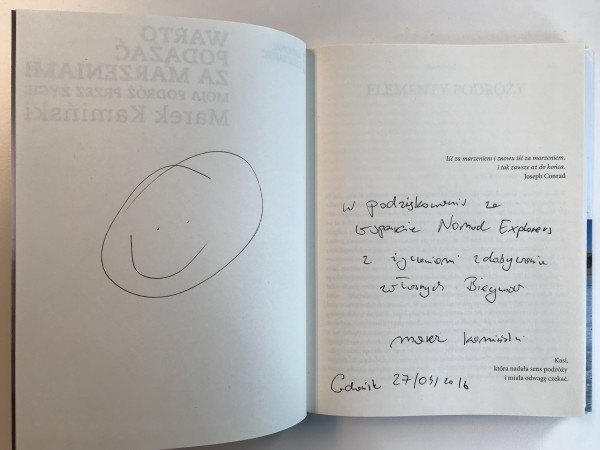 WARTO
PODĄŻAĆ
ZA MARZENIAMI
MOJA PODRÓŻ PRZEZ ŻYCIE
Marek Kamiński
ELEMENTY PODRÓŻY
Iść za marzeniem i znowu iść za marzeniem,
i tak zawsze aż do końca.
Joseph Conrad
W podziękowaniu za
wsparcie Nomad Explorers
z życzeniami zdobywania
własnych Biegunów
Marek Kamiński
Gdańsk 27/09/2016
Kasi,
która nadała sens podróży
i miała odwagę czekać.